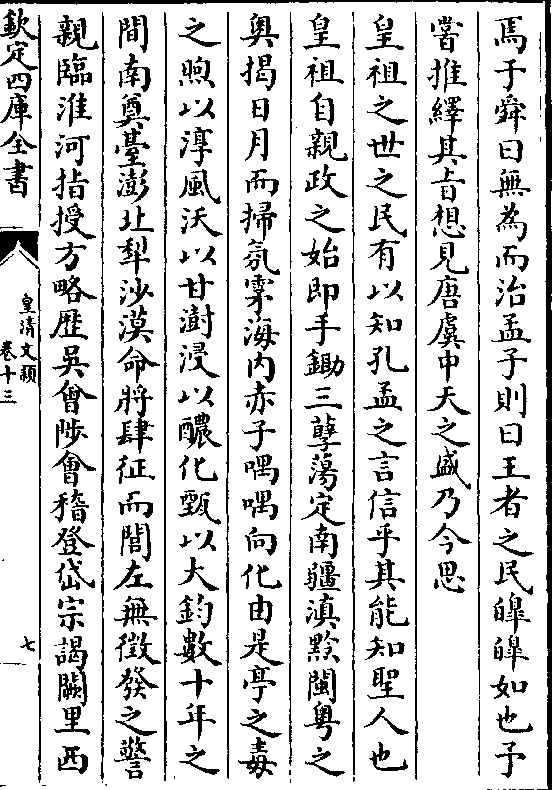 焉于舜曰無為而治孟子則曰王者之民皥皥如也予
嘗推繹其旨想見唐虞中天之盛乃今思
皇祖之世之民有以知孔孟之言信乎其能知聖人也
皇祖自親政之始即手鋤三孽蕩定南疆滇黔閩粵之
奧揭日月而掃氛霿海内赤子喁喁向化由是亭之毒
之煦以淳風沃以甘澍浸以醲化甄以大鈞數十年之
間南奠臺澎北犁沙漠命將肆征而閭左無徵發之警
親臨淮河指授方略歷吳會陟會稽登岱宗謁闕里西
欽定四庫全書
皇清文穎
卷十三
七